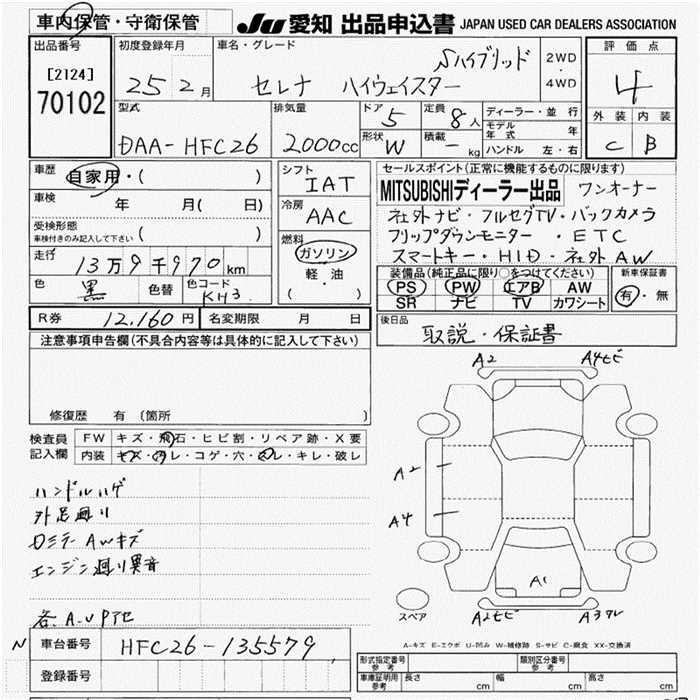 車内保管・守衛保管
JU 愛知 出品申込書 JAPAN USED CAR DEALERS ASSOCIATION
出品番号
[2124]
70102
初度登録年月
25 2月
車名・グレード
Sハイブリッド
セレナ ハイウェイスター
2WD
・
4WD
評価点
4
外装 内装
C B
型式
DAA-HFC26
排気量
2000cc
ドア 5
形状 W
定員 8人
積載 - kg
ディーラー・並行
モデル年式 年
ハンドル 左・右
車歴 自家用・( )
車検 年 月( 日)
受検形態
車検付きのみ記入して下さい ( )
走行 13万9千970km
色 黒 色替 色コード KH3
シフト
IAT
冷房
AAC
燃料
ガソリン
軽・油
( )
セールスポイント(正常に機能するものに限ります)
MITSUBISHIディーラー出品 ワンオーナー
社外ナビ・フルセグTV・バックカメラ
フリップダウンモニター・ETC
スマートキー・HID・社外AW
装備品(純正品に限り○をつけてください)
PS PW エアB AW
SR ナビ TV カワシート
新車保証書
有・無
R券 12,160円 名変期限 月 日
後日品
取説・保証書
注意事項申告欄(不具合内容等は具体的に記入して下さい)
修復歴 有(箇所
検査員記入欄
FW キズ・飛石・ヒビ割・リペア跡・X要
内装 キズ・汚レ・コゲ・穴・スレ・キレ・破レ
ハンドルハゲ
外足廻り
Dミラー AWキズ
エンジン廻り異音
各A.UPアセ
N 車台番号 HFC26-135579
登録番号
A2 A4ヒビ
A2
A4
A1
スペア
A2ヒビ A3ワレ
A-キズ E-エクボ U-凹み W-補修跡 S-サビ C-腐食 XX-交換済
形式指定番号 参考 類別区分番号 参考
車庫証明用 参考 長さ cm 幅 cm 高さ cm